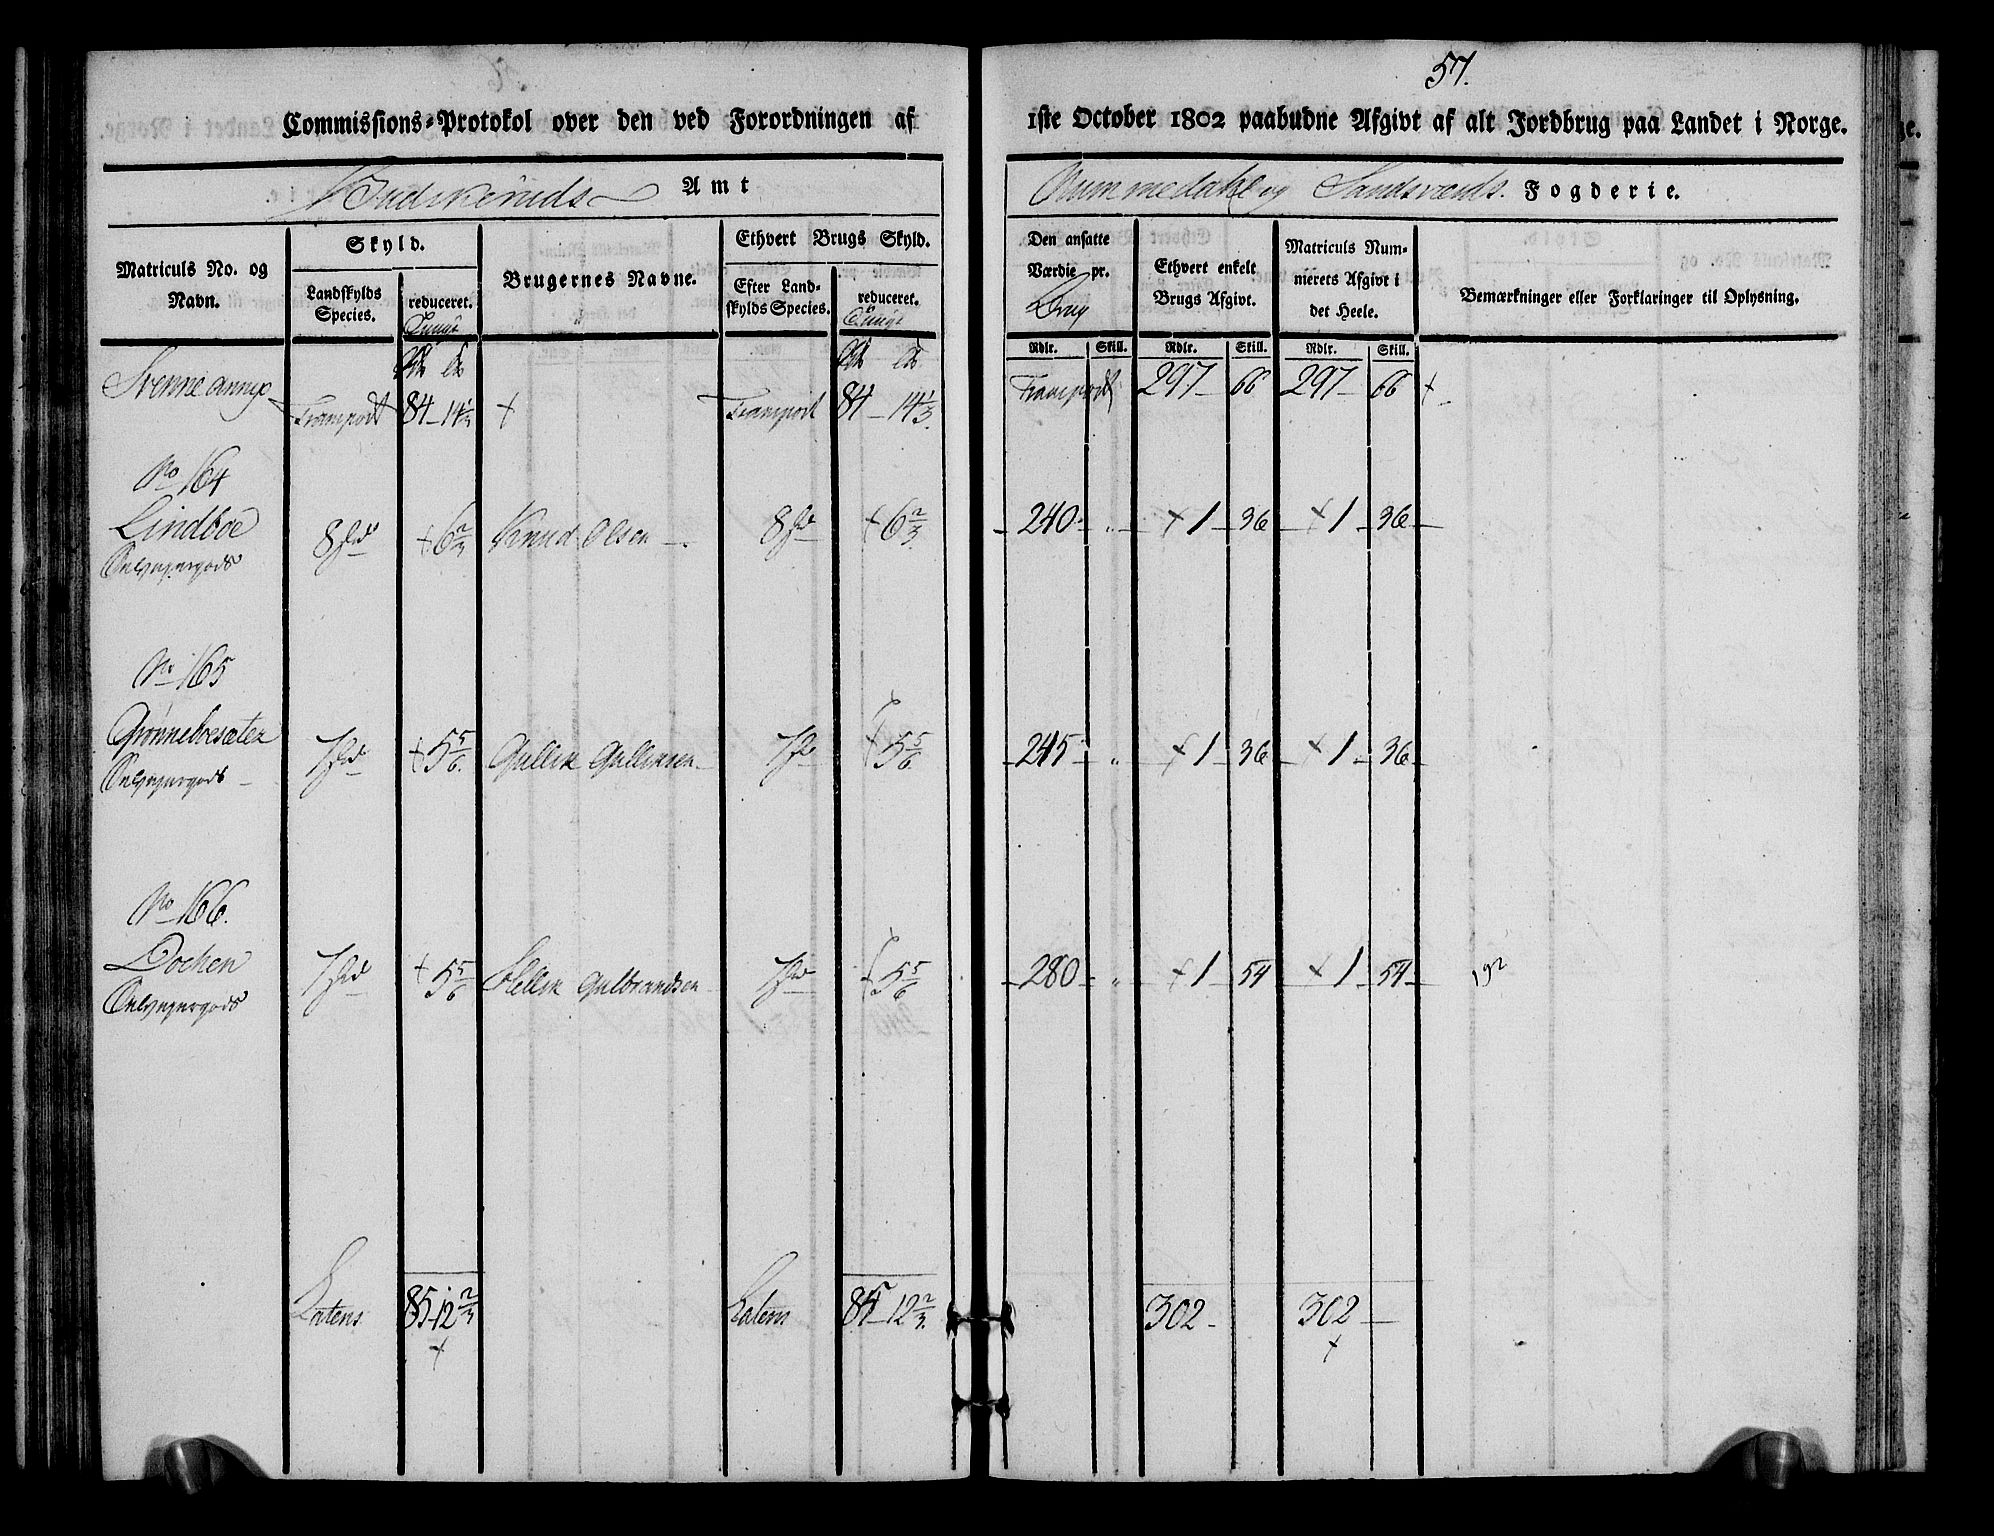 57.
Commissions-Protokol over den ved Forordningen af 1ste October 1802 paabudne Afgivt af alt Jordbrug paa Landet i Norge.
Buskeruds Amt
Nummedahl og Sandsværds Fogderie.
Matriculs No. og Navn.
Skyld.
Landskylds Species.
reduceret.
Tunge
Brugernes Navne.
Ethvert Brugs Skyld.
Efter Landskylds Species.
reduceret.
Tunge
Den ansatte Værdie pr. Brug
Ethvert enkelt Brugs Afgivt.
Matriculs Nummerets Afgivt i det Heele.
Bemærkninger eller Forklaringer til Oplysning.
Rdlr. Skill. Rdlr. Skill. Rdlr. Skill.
Svenne annex
Transport 84 - 14 1/3 + Transport 84 - 14 1/3. Transport 297 - 66 297 - 66 +
No 164
Lindboe 8 + 6 2/3 Knud Olsen 8 + 6 2/3. 240 - „ + 1 - 36 + 1 - 36
Selveyergods
No 165
Grønneboesæter 7 + 5 5/6. Gullik Gulliksen 7 + 5 5/6 245 - „ + 1 36 + 1 - 36
Selveyergods
No 166.
Dochen 7 + 5 5/6 Hellik Gulbrandsen 7 + 5 5/6 280 - „ + 1 54 + 1 - 54 192
Selveyergods
Latens 85 - 12 2/3 Latens 85 - 12 2/3. 302 - 302 -
+ +